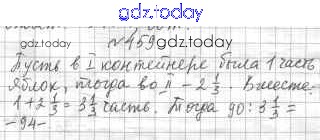 gdz.today
№459
gdz.today gdz.today
Пусть в I контейнере была 1 часть
яблок, тогда во II - 2 1/3. Вместе:
1+2 1/3 = 3 1/3 часть. Тогда 90 : 3 1/3 =
-94-